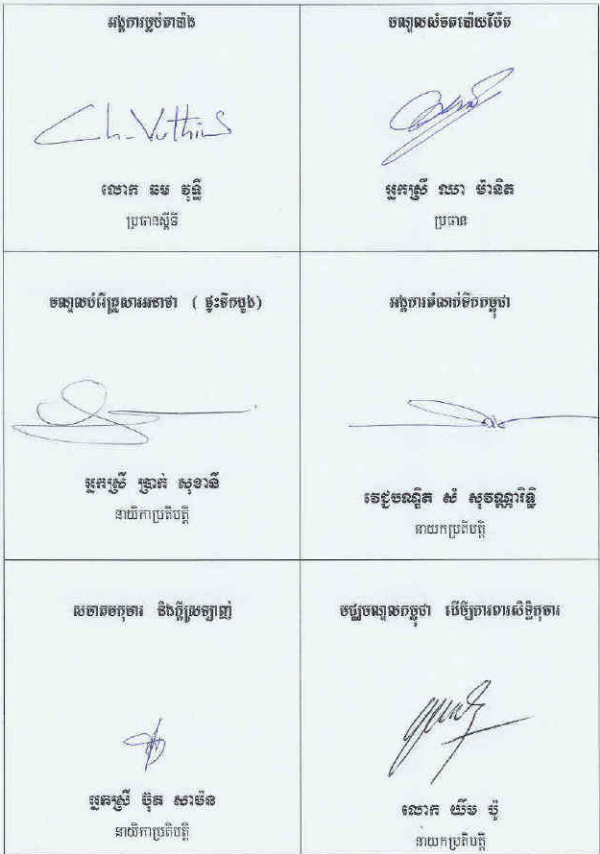 អង្គការម្លប់តាប៉ាង
Ch-Vuthins
លោក ឆម វុទ្ធី
ប្រធានស្តីទី
មណ្ឌលសំចតប៉ោយប៉ែត
អ្នកស្រី ឈា ម៉ានិត
ប្រធាន
មណ្ឌលបំរើគ្រួសារអនាថា ( ផ្ទះទឹកដូង)
អ្នកស្រី ប្រាក់ សុខានី
នាយិកាប្រតិបត្តិ
អង្គការតំណក់ទឹកកម្ពុជា
វេជ្ជបណ្ឌិត សំ សុវណ្ណារិទ្ធិ
នាយកប្រតិបត្តិ
សមាគមកុមារ និងក្តីស្រឡាញ់
អ្នកស្រី ប៊ុត សាម៉ន
នាយិកាប្រតិបត្តិ
មជ្ឈមណ្ឌលកម្ពុជា ដើម្បីការពារសិទ្ធិកុមារ
លោក យឹម ប៉ូ
នាយកប្រតិបត្តិ